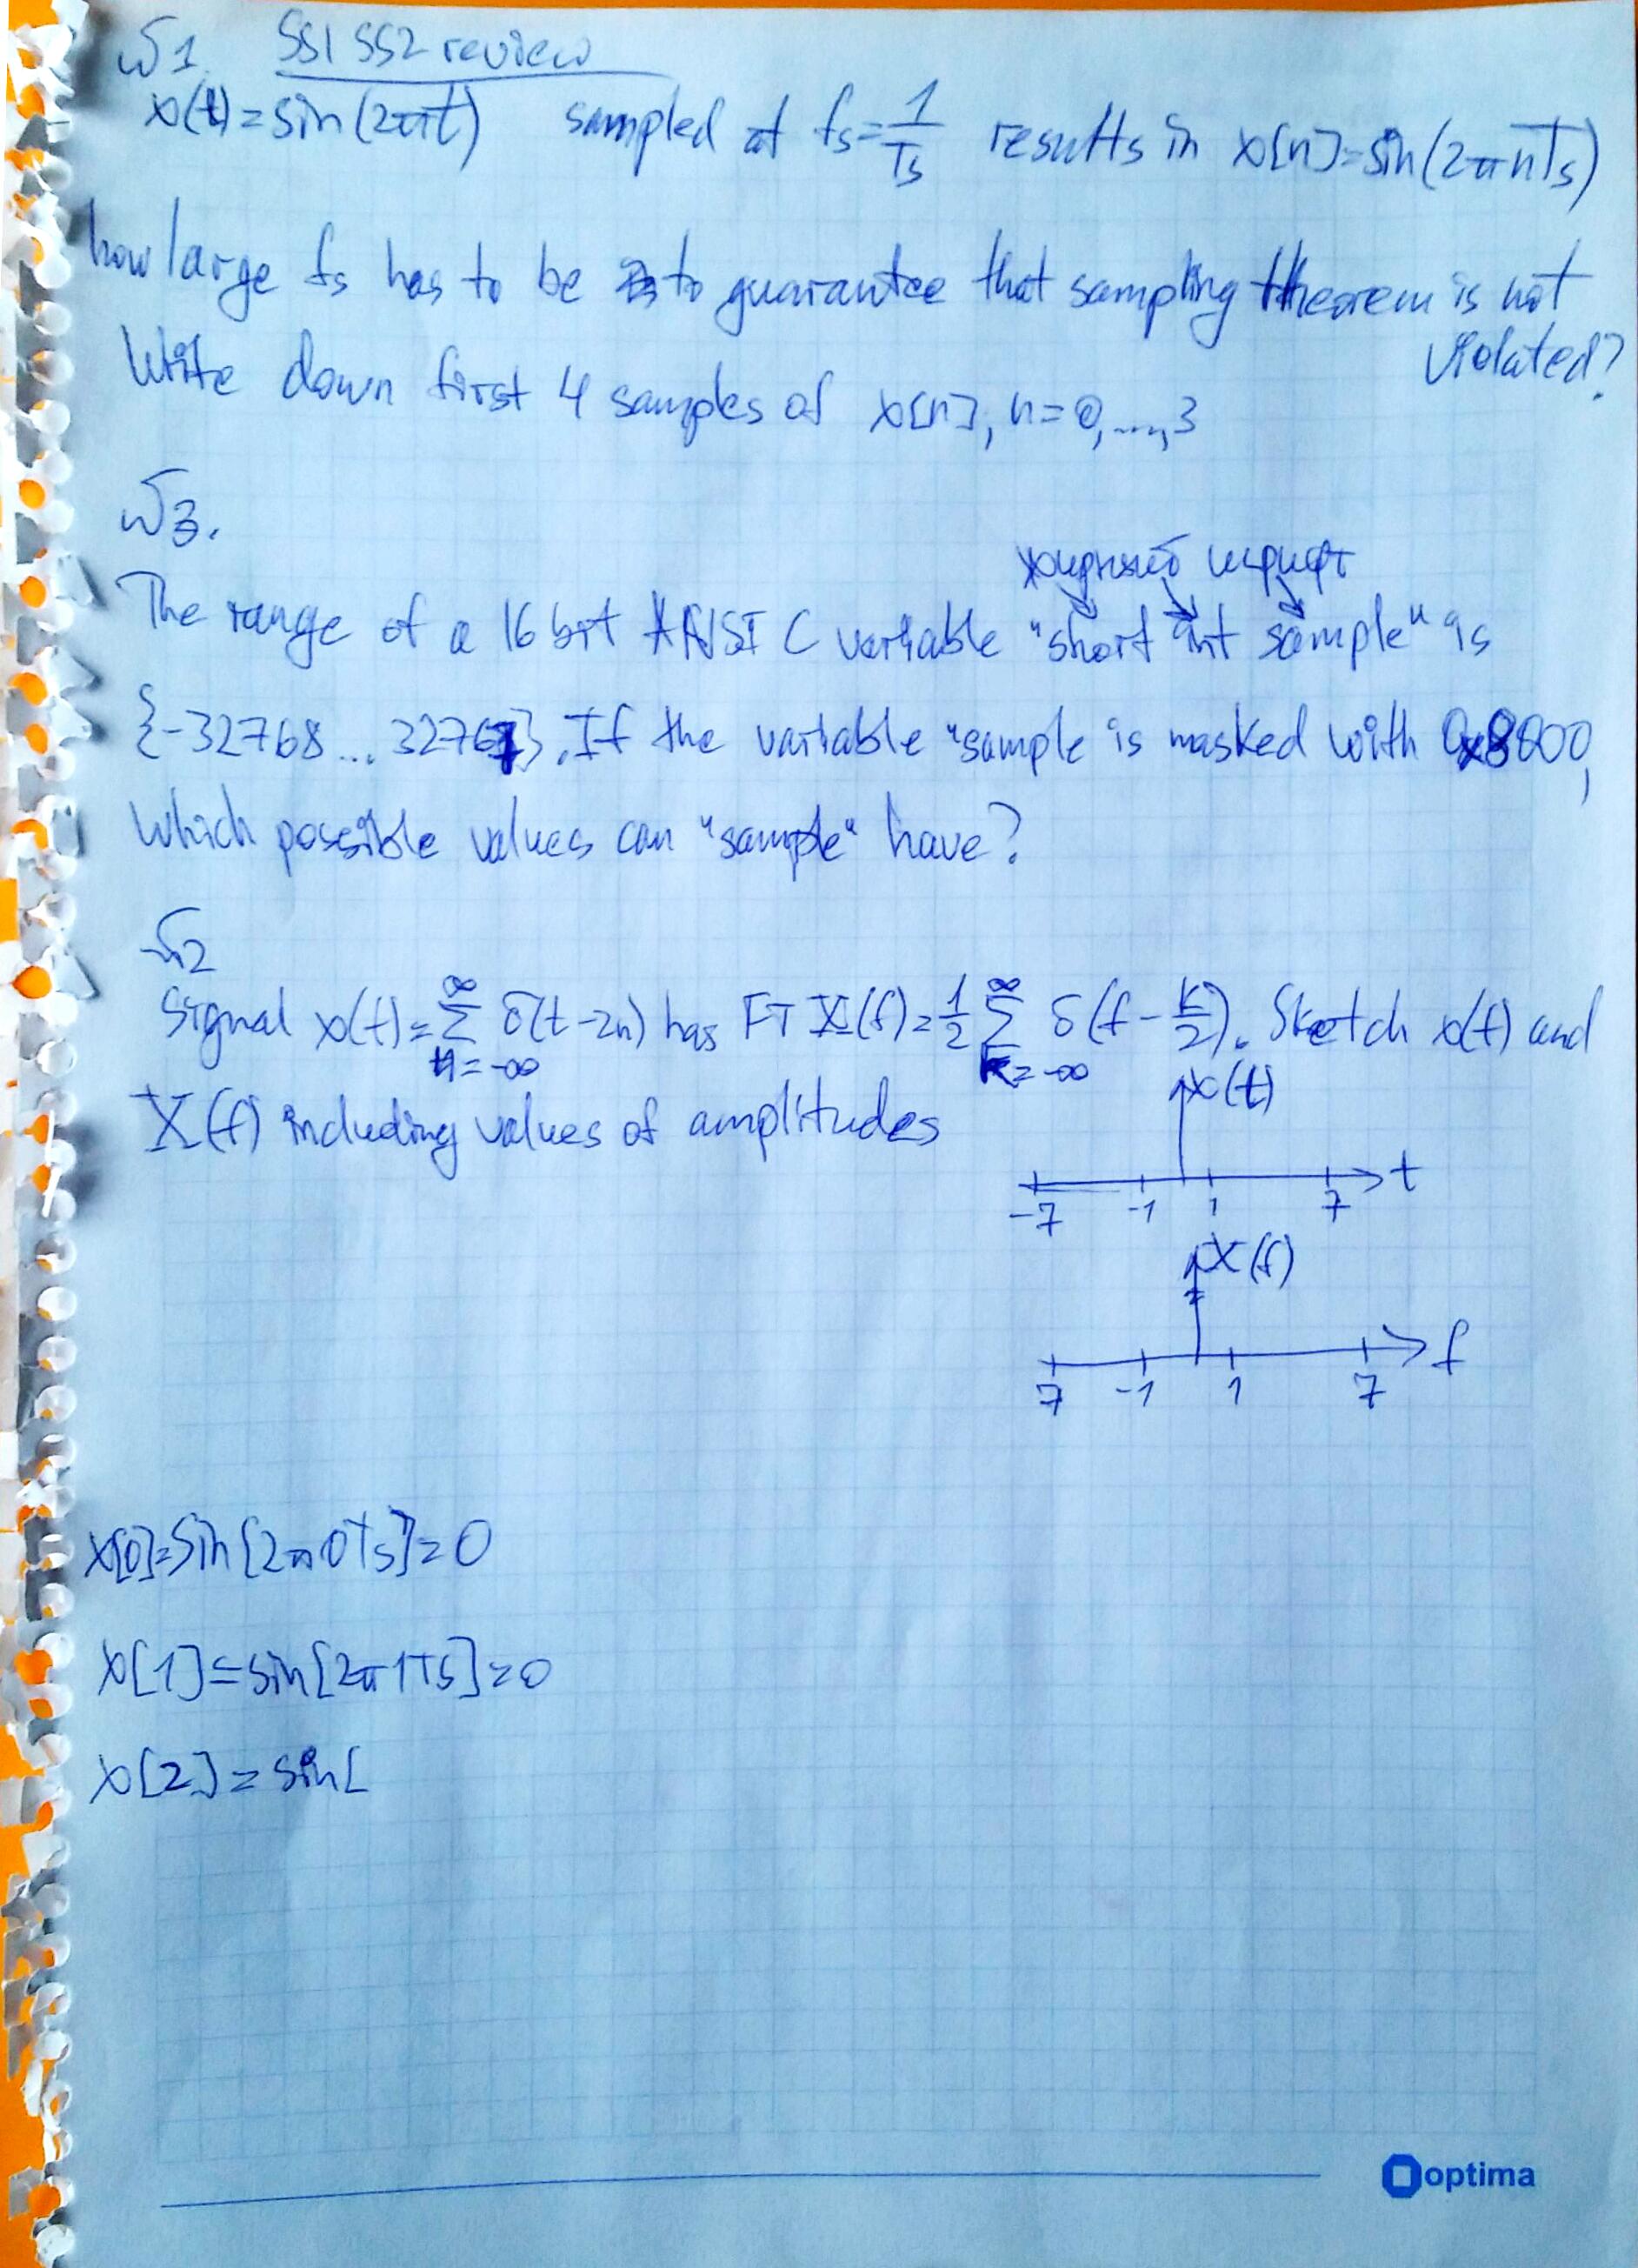 №1. SS1 SS2 review
x(t)=sin(2πt) sampled at fs=1/Ts results in x[n]=sin(2πnTs)
how large fs has to be to guarantee that sampling theorem is not
violated?
Write down first 4 samples of x[n], n=0,...,3
№3.
жирный шрифт
The range of a 16 bit ANSI C variable "short int sample" is
{-32768... 32767}. If the variable "sample is masked with 0x8000,
which possible values can "sample" have?
№2
Signal x(t)=∑_{n=-∞}^{∞} δ(t-2n) has FT X(f)=1/2 ∑_{k=-∞}^{∞} δ(f-k/2). Sketch x(t) and
X(f) including values of amplitudes
x(t)
t
-7 -1 1 7
X(f)
f
7 -1 1 7
x[0]=sin[2π0Ts]=0
x[1]=sin[2π1Ts]=0
x[2]=sin[
optima